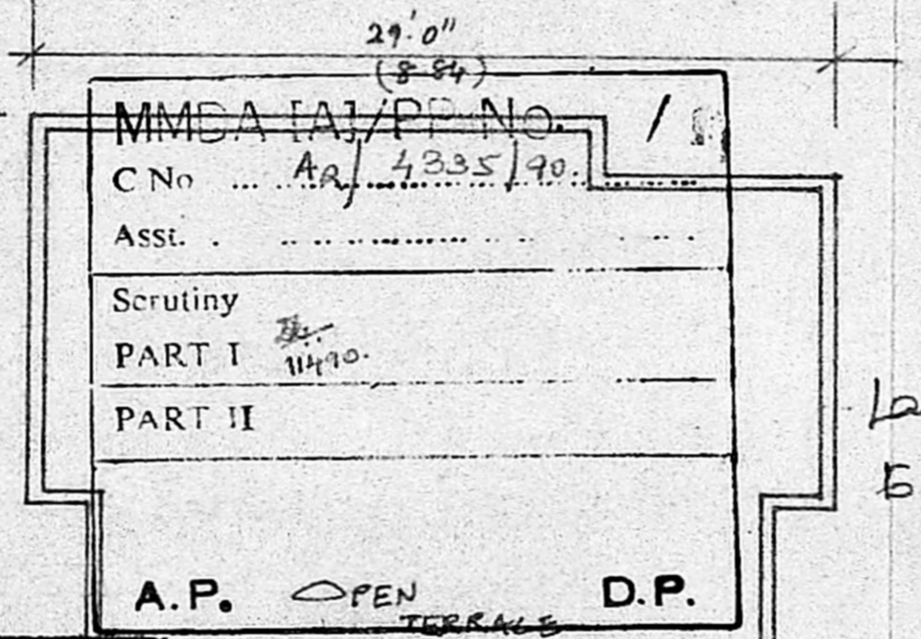 29'-0"
(8-84)
MMDA [A]/PP No. /
C No ... AR/ 4335/90.
Asst. . .. ......... .. . ...
Scrutiny
PART I
11490.
PART II
A.P. OPEN D.P.
TERRACE